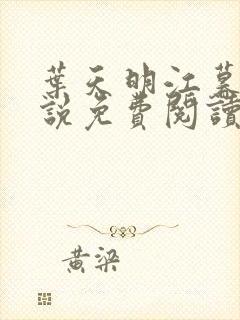 葉天明江慕
說免費閱讀
黃梁